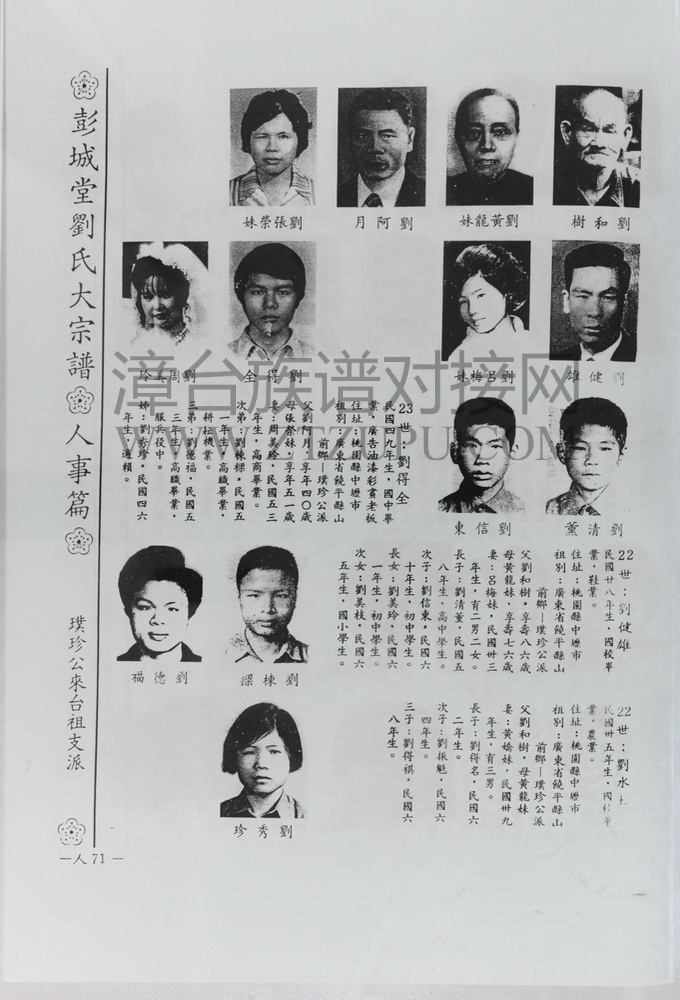 彭城堂劉氏大宗譜
人事篇
璞珍公來台祖支派
—人71—
劉和樹
劉黃龍妹
劉阿月
劉張榮妹
劉健雄
劉呂梅妹
劉得全
劉周美玲
劉清薰
劉信東
23世：劉得全
民國四九年生，國中畢
業，廣告油漆彩畫老板
住址：桃園縣中壢市
祖別：廣東省饒平縣山
前鄉—璞珍公派
父劉阿月，享年四〇歲
母張榮妹，享年五一歲
妻：周美玲，民國五三
年生，高商畢業。
次弟：劉棟樑，民國五
一年生，高職畢業，
耕耘機業。
三弟：劉德福，民國五
三年生，高職畢業，
服兵役中。
姊：劉秀珍，民國四六
年生，適賴。
22世：劉健雄
民國廿八年生，國校畢
業，鞋業。
住址：桃園縣中壢市
祖別：廣東省饒平縣山
前鄉—璞珍公派
父劉和樹，享壽八六歲
母黃龍妹，享壽七六歲
妻：呂梅妹，民國卅三
年生，育二男二女。
長子：劉清薰，民國五
八年生，高中學生。
次子：劉信東，民國六
十年生，初中學生。
長女：劉美玲，民國六
一年生，初中學生。
次女：劉美枝，民國六
五年生，國小學生。
劉棟樑
劉德福
22世：劉水
民國卅五年生，國校畢
業，農業。
住址：桃園縣中壢市
祖別：廣東省饒平縣山
前鄉—璞珍公派
父劉和樹，母黃龍妹
妻：黃嬌妹，民國卅九
年生，育三男。
長子：劉得名，民國六
二年生。
次子：劉振魁，民國六
四年生。
三子：劉得祺，民國六
八年生。
劉秀珍
漳台族谱对接网
WWW.ZTZUPU.COM